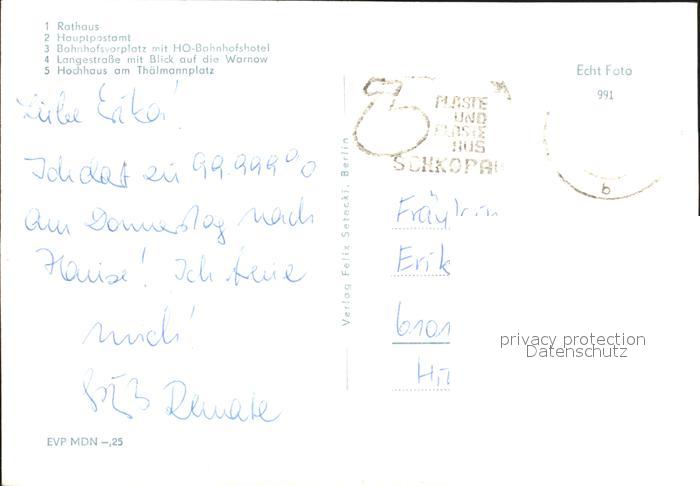 1 Rathaus
2 Hauptpostamt
3 Bahnhofsvorplatz mit HO-Bahnhofshotel
4 Langestraße mit Blick auf die Warnow
5 Hochhaus am Thälmannplatz
Liebe Erika!
Ich darf zu 99.999%
am Donnerstag nach
Hause! Ich freue
mich!
Renate
EVP MDN –,25
Verlag Felix Setecki, Berlin
PLASTE
UND
ELASTE
AUS
SCHKOPAU
Echt Foto
991
b
Fräulein
Erik
Hi
privacy protection
Datenschutz